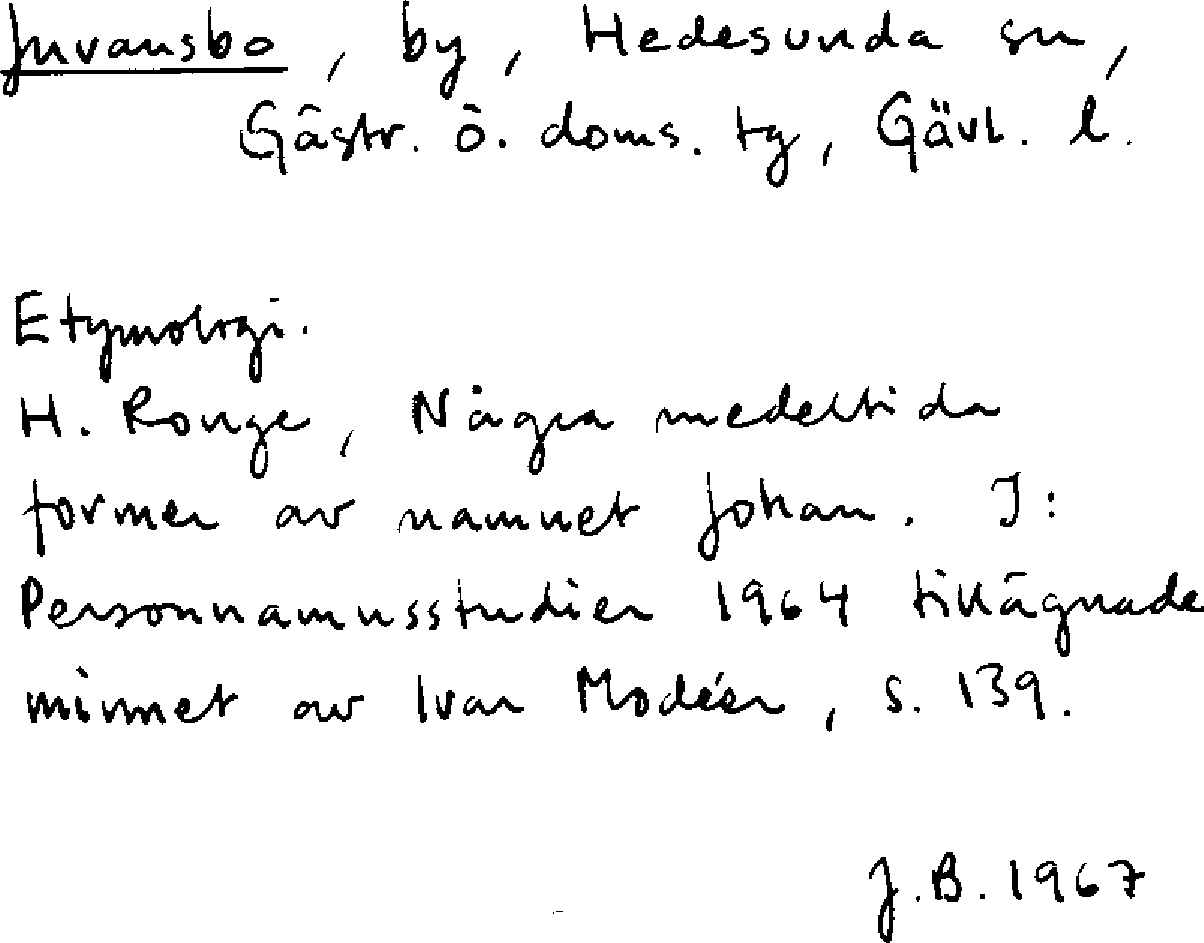 Juvansbo, by, Hedesunda sn,
Gästr. ö. doms. tg, Gävl. l.
Etymologi.
H. Ronge, Några medeltida
former av namnet Johan. I:
Personnamnsstudier 1964 tillägnade
minnet av Ivar Modéer, s. 139.
J.B. 1967